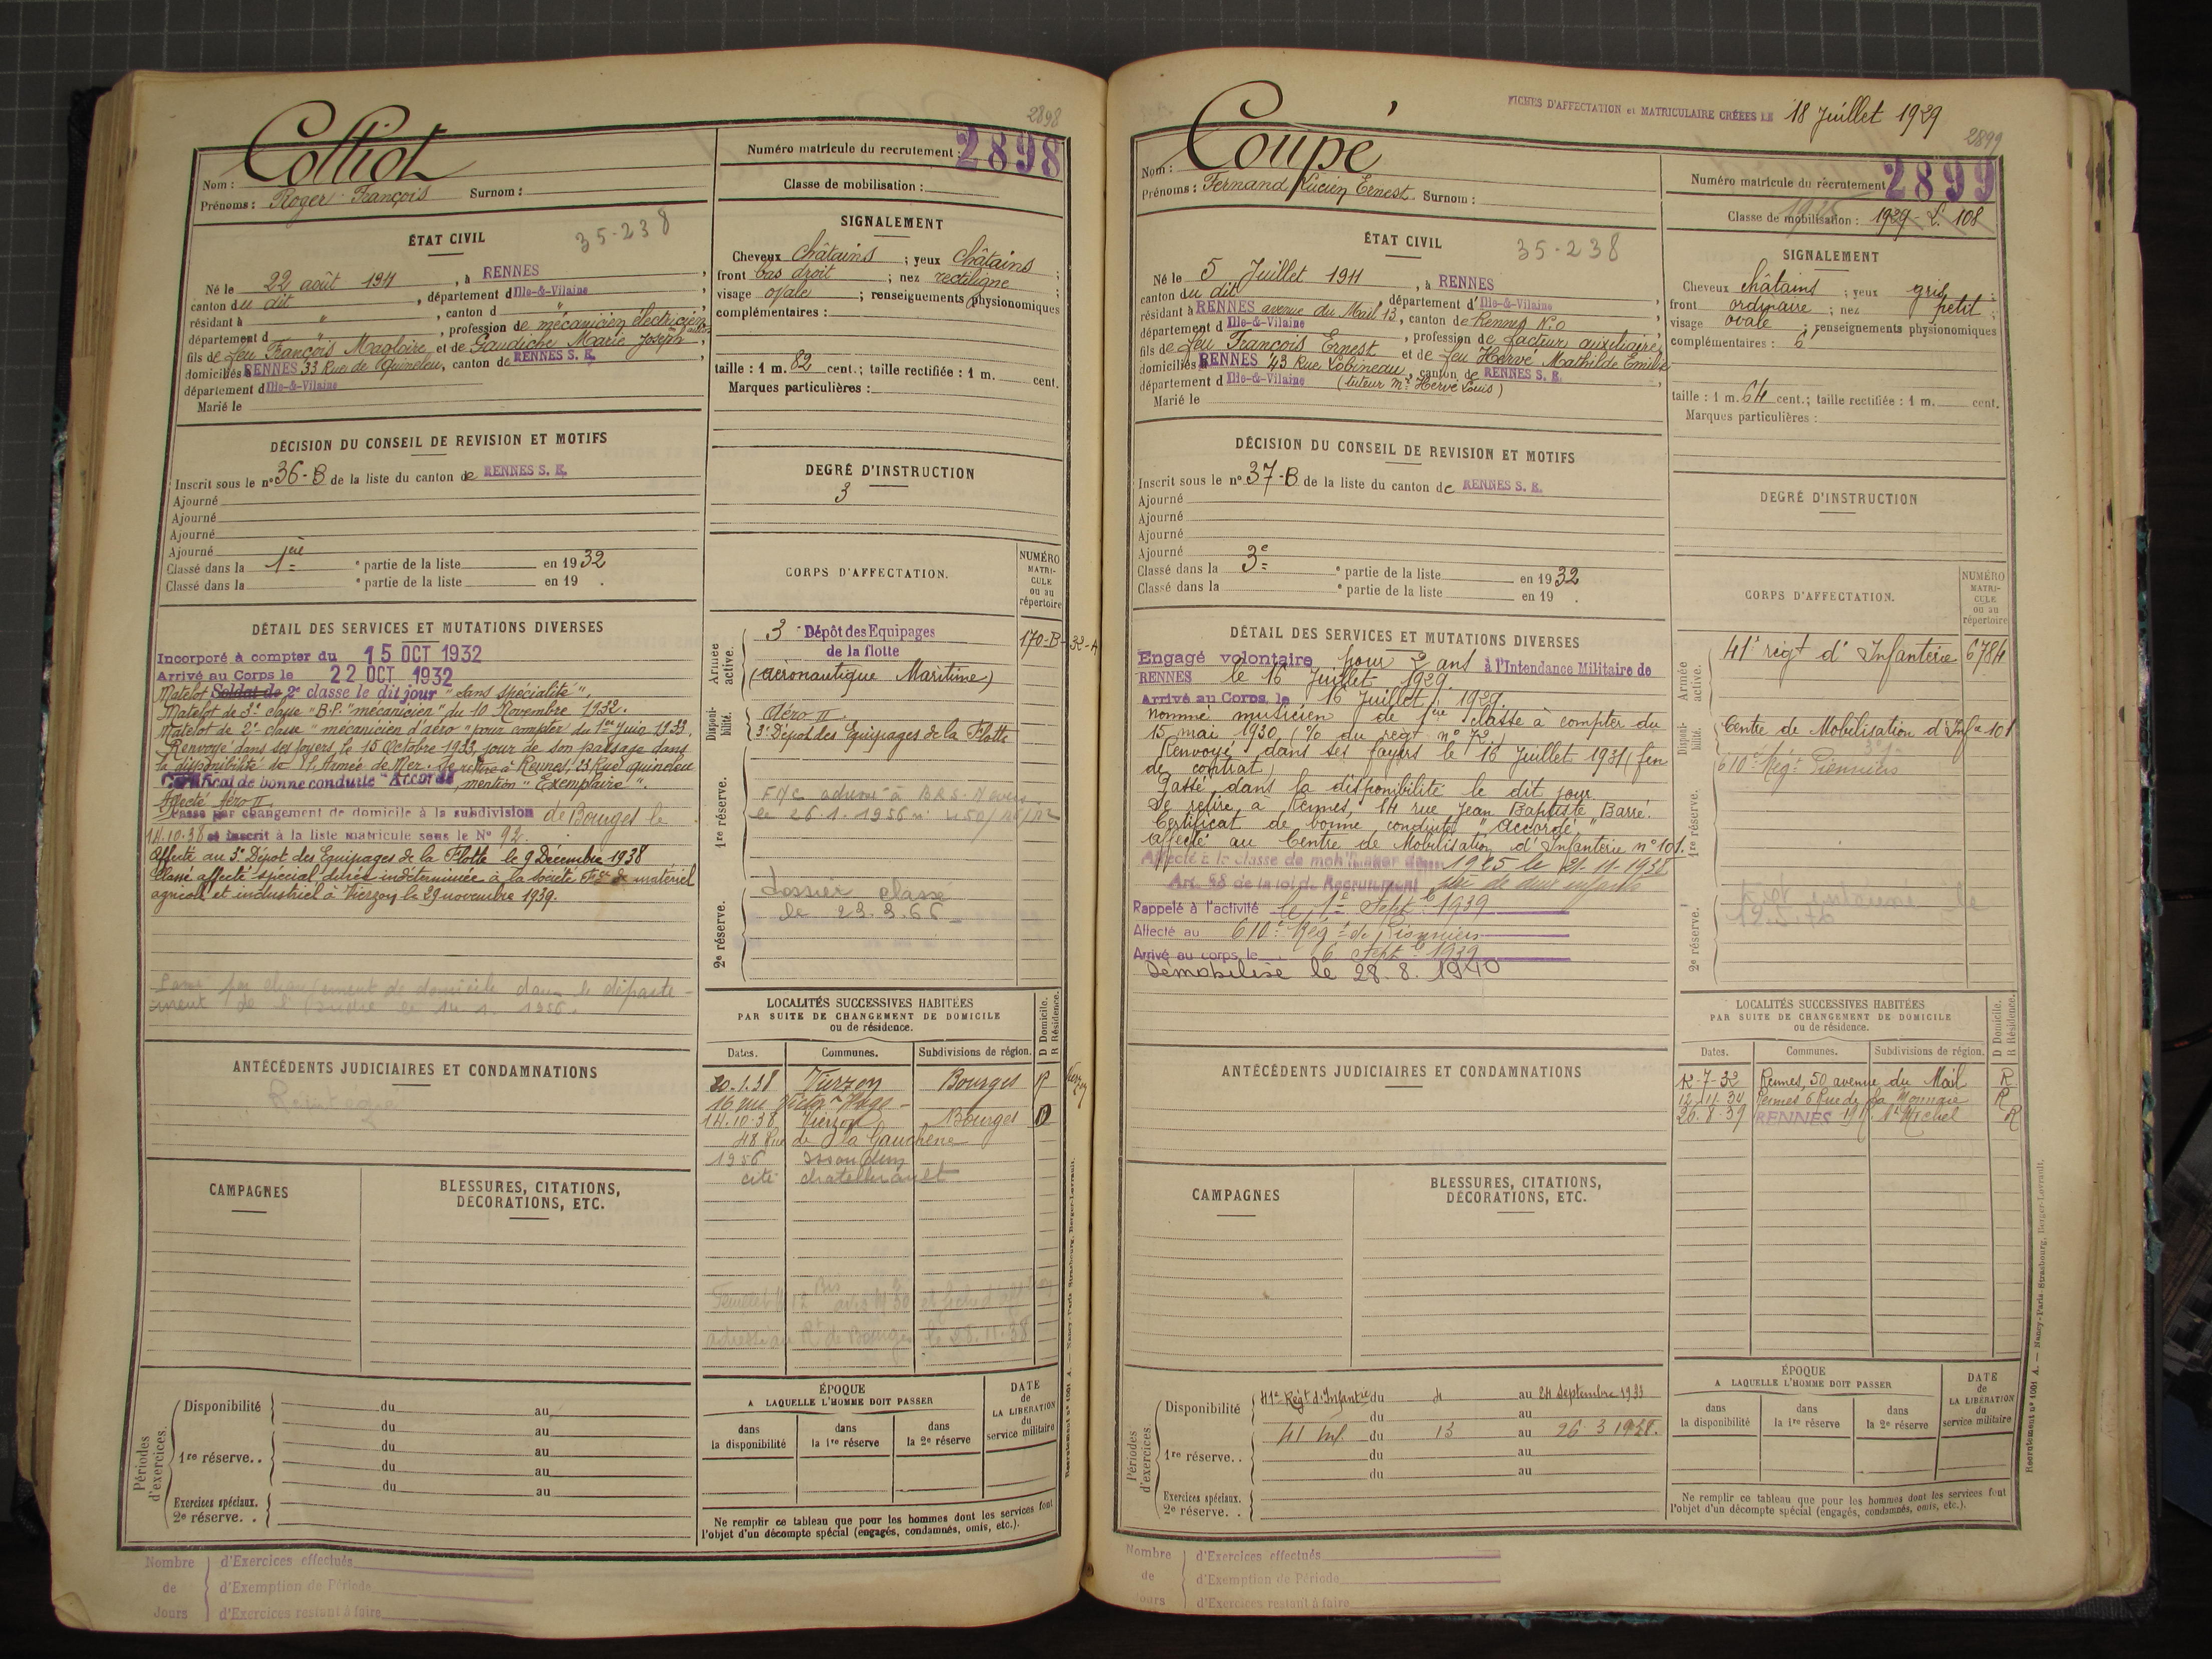 2898
Colliot
Nom :
Prénoms : Roger François Surnom :
Numéro matricule du recrutement : 2898
Classe de mobilisation :
ÉTAT CIVIL
35-238
Né le 22 août 1911, à RENNES,
canton du dit, département d'Ille-&-Vilaine
résidant à " , canton d "
département d " , profession de mécanicien électricien
fils de feu François Magloire et de Gaudiche Marie Joseph,
domiciliés à RENNES 33 Rue de Quineleu, canton de RENNES S. E.
département d'Ille-&-Vilaine
Marié le
SIGNALEMENT
Cheveux châtains ; yeux châtains ;
front bas droit ; nez rectiligne ;
visage ovale ; renseignements physionomiques
complémentaires :
taille : 1 m. 82 cent.; taille rectifiée : 1 m. cent.
Marques particulières :
DÉCISION DU CONSEIL DE REVISION ET MOTIFS
Inscrit sous le n° 36-B de la liste du canton de RENNES S. E.
Ajourné
Ajourné
Ajourné
Ajourné
Classé dans la 1ère ° partie de la liste en 1932
Classé dans la ° partie de la liste en 19 .
DEGRÉ D'INSTRUCTION
3
DÉTAIL DES SERVICES ET MUTATIONS DIVERSES
Incorporé à compter du 15 OCT 1932
Arrivé au Corps le 22 OCT 1932
Matelot Soldat de 2e classe le dit jour "sans spécialité".
Matelot de 3e classe "B.P. "mécanicien" du 10 Novembre 1932.
Matelot de 2e classe "mécanicien d'aéro" pour compter du 1er Juin 1933.
Renvoyé dans ses foyers le 15 Octobre 1933, jour de son passage dans
la disponibilité de l'Armée de Mer. Se retire à Rennes, 23 Rue Quineleu
Certificat de bonne conduite "Accordé", mention "Exemplaire".
Affecté Aéro II
Passé par changement de domicile à la subdivision de Bourges le
14.10.38 et inscrit à la liste matricule sous le N° 92.
Affecté au 3e Dépot des Equipages de la Flotte le 9 Décembre 1938
Classé affecté spécial durée indéterminée à la Société Fse de matériel
agricole et industriel à Vierzon le 29 novembre 1939.
Passé par changement de domicile dans le départe-
ment de l'Indre le 14.1.1956.
CORPS D'AFFECTATION.
NUMÉRO
MATRI-
CULE
ou au
répertoire
Armée active.
3e Dépôt des Equipages
de la flotte
(Aéronautique Maritime)
170-B-32-A
Disponi-
bilité.
Aéro II
3e Dépot des Equipages de la Flotte
1re réserve.
le 26.1.1956
2e réserve.
dossier classé
le 23.3.66
ANTÉCÉDENTS JUDICIAIRES ET CONDAMNATIONS
CAMPAGNES
BLESSURES, CITATIONS,
DÉCORATIONS, ETC.
LOCALITÉS SUCCESSIVES HABITÉES
PAR SUITE DE CHANGEMENT DE DOMICILE
ou de résidence.
D Domicile.
R Résidence.
Dates. Communes. Subdivisions de région.
20.1.38 Vierzon Bourges R Vierzon
16 rue Victor Hugo
14.10.38 Vierzon Bourges D
48 Rue de la Gaucherie
1956 Issoudun
cité chatellerault
Périodes
d'exercices.
Disponibilité du au
du au
1re réserve. . du au
du au
du au
Exercices spéciaux.
2e réserve. .
ÉPOQUE
A LAQUELLE L'HOMME DOIT PASSER
dans
la disponibilité
dans
la 1re réserve
dans
la 2e réserve
DATE
de
LA LIBÉRATION
du
service militaire
Ne remplir ce tableau que pour les hommes dont les services font
l'objet d'un décompte spécial (engagés, condamnés, omis, etc.).
Nombre
de
Jours
d'Exercices effectués
d'Exemption de Période
d'Exercices restant à faire
FICHES D'AFFECTATION et MATRICULAIRE CRÉÉES LE 18 Juillet 1929
2899
Coupé
Nom :
Prénoms : Fernand Lucien Ernest Surnom :
Numéro matricule du recrutement 2899
Classe de mobilisation : 1929 - S. 108
ÉTAT CIVIL
35-238
Né le 5 Juillet 1911, à RENNES
canton du dit, département d'Ille-&-Vilaine
résidant à RENNES avenue du Mail 13, canton de Rennes N.O
département d'Ille-&-Vilaine, profession de facteur auxiliaire
fils de feu François Ernest et de feu Hervé Mathilde Emilie
domiciliés à RENNES 43 Rue Lobineau, canton de RENNES S. E.
département d'Ille-&-Vilaine (tuteur Mr Hervé Louis)
Marié le
SIGNALEMENT
Cheveux châtains ; yeux gris ;
front ordinaire ; nez petit ;
visage ovale ; renseignements physionomiques
complémentaires :
taille : 1 m. 64 cent.; taille rectifiée : 1 m. cent.
Marques particulières :
DÉCISION DU CONSEIL DE REVISION ET MOTIFS
Inscrit sous le n° 37-B de la liste du canton de RENNES S. E.
Ajourné
Ajourné
Ajourné
Ajourné
Classé dans la 3e ° partie de la liste en 1932
Classé dans la ° partie de la liste en 19 .
DEGRÉ D'INSTRUCTION
DÉTAIL DES SERVICES ET MUTATIONS DIVERSES
Engagé volontaire pour 2 ans à l'Intendance Militaire de
RENNES le 16 Juillet 1929.
Arrivé au Corps le 16 Juillet 1929.
Nommé musicien de 1ère classe à compter du
15 mai 1930 (% du régt n° 72.)
Renvoyé dans ses foyers le 16 Juillet 1931 (fin
de contrat)
Passé dans la disponibilité le dit jour.
Se retire à Rennes, 14 rue Jean Baptiste Barré.
Certificat de bonne conduite "Accordé"
Affecté au Centre de Mobilisation d'Infanterie n° 101.
Affecté à la classe de mobilisation de 1925 le 21.11.1938
Art. 58 de la loi de Recrutement père de deux enfants
Rappelé à l'activité le 1er Septbre 1939
Affecté au 610e Régt de Pionniers
Arrivé au corps le 6 Septbre 1939
Démobilisé le 28.8.1940
CORPS D'AFFECTATION.
NUMÉRO
MATRI-
CULE
ou au
répertoire
Armée active.
41e régt d'Infanterie 6784
Disponi-
bilité.
Centre de Mobilisation d'Infie 101
610e Régt Pionniers
1re réserve.
2e réserve.
ANTÉCÉDENTS JUDICIAIRES ET CONDAMNATIONS
CAMPAGNES
BLESSURES, CITATIONS,
DÉCORATIONS, ETC.
LOCALITÉS SUCCESSIVES HABITÉES
PAR SUITE DE CHANGEMENT DE DOMICILE
ou de résidence.
D Domicile.
R Résidence.
Dates. Communes. Subdivisions de région.
12-7-32 Rennes, 50 avenue du Mail R
12.11.34 Rennes 6 Rue de la Monnaie R
26.8.39 RENNES St Michel R
Périodes
d'exercices.
Disponibilité 41e Régt d'Infantie du 4 au 24 Septembre 1933
du au
41 Inf du 13 au 26-3 1938.
1re réserve. . du au
du au
Exercices spéciaux.
2e réserve. .
ÉPOQUE
A LAQUELLE L'HOMME DOIT PASSER
dans
la disponibilité
dans
la 1re réserve
dans
la 2e réserve
DATE
de
LA LIBÉRATION
du
service militaire
Ne remplir ce tableau que pour les hommes dont les services font
l'objet d'un décompte spécial (engagés, condamnés, omis, etc.).
Recrutement n° 1001 A. — Nancy-Paris-Strasbourg, Berger-Levrault.
Nombre
de
Jours
d'Exercices effectués
d'Exemption de Période
d'Exercices restant à faire